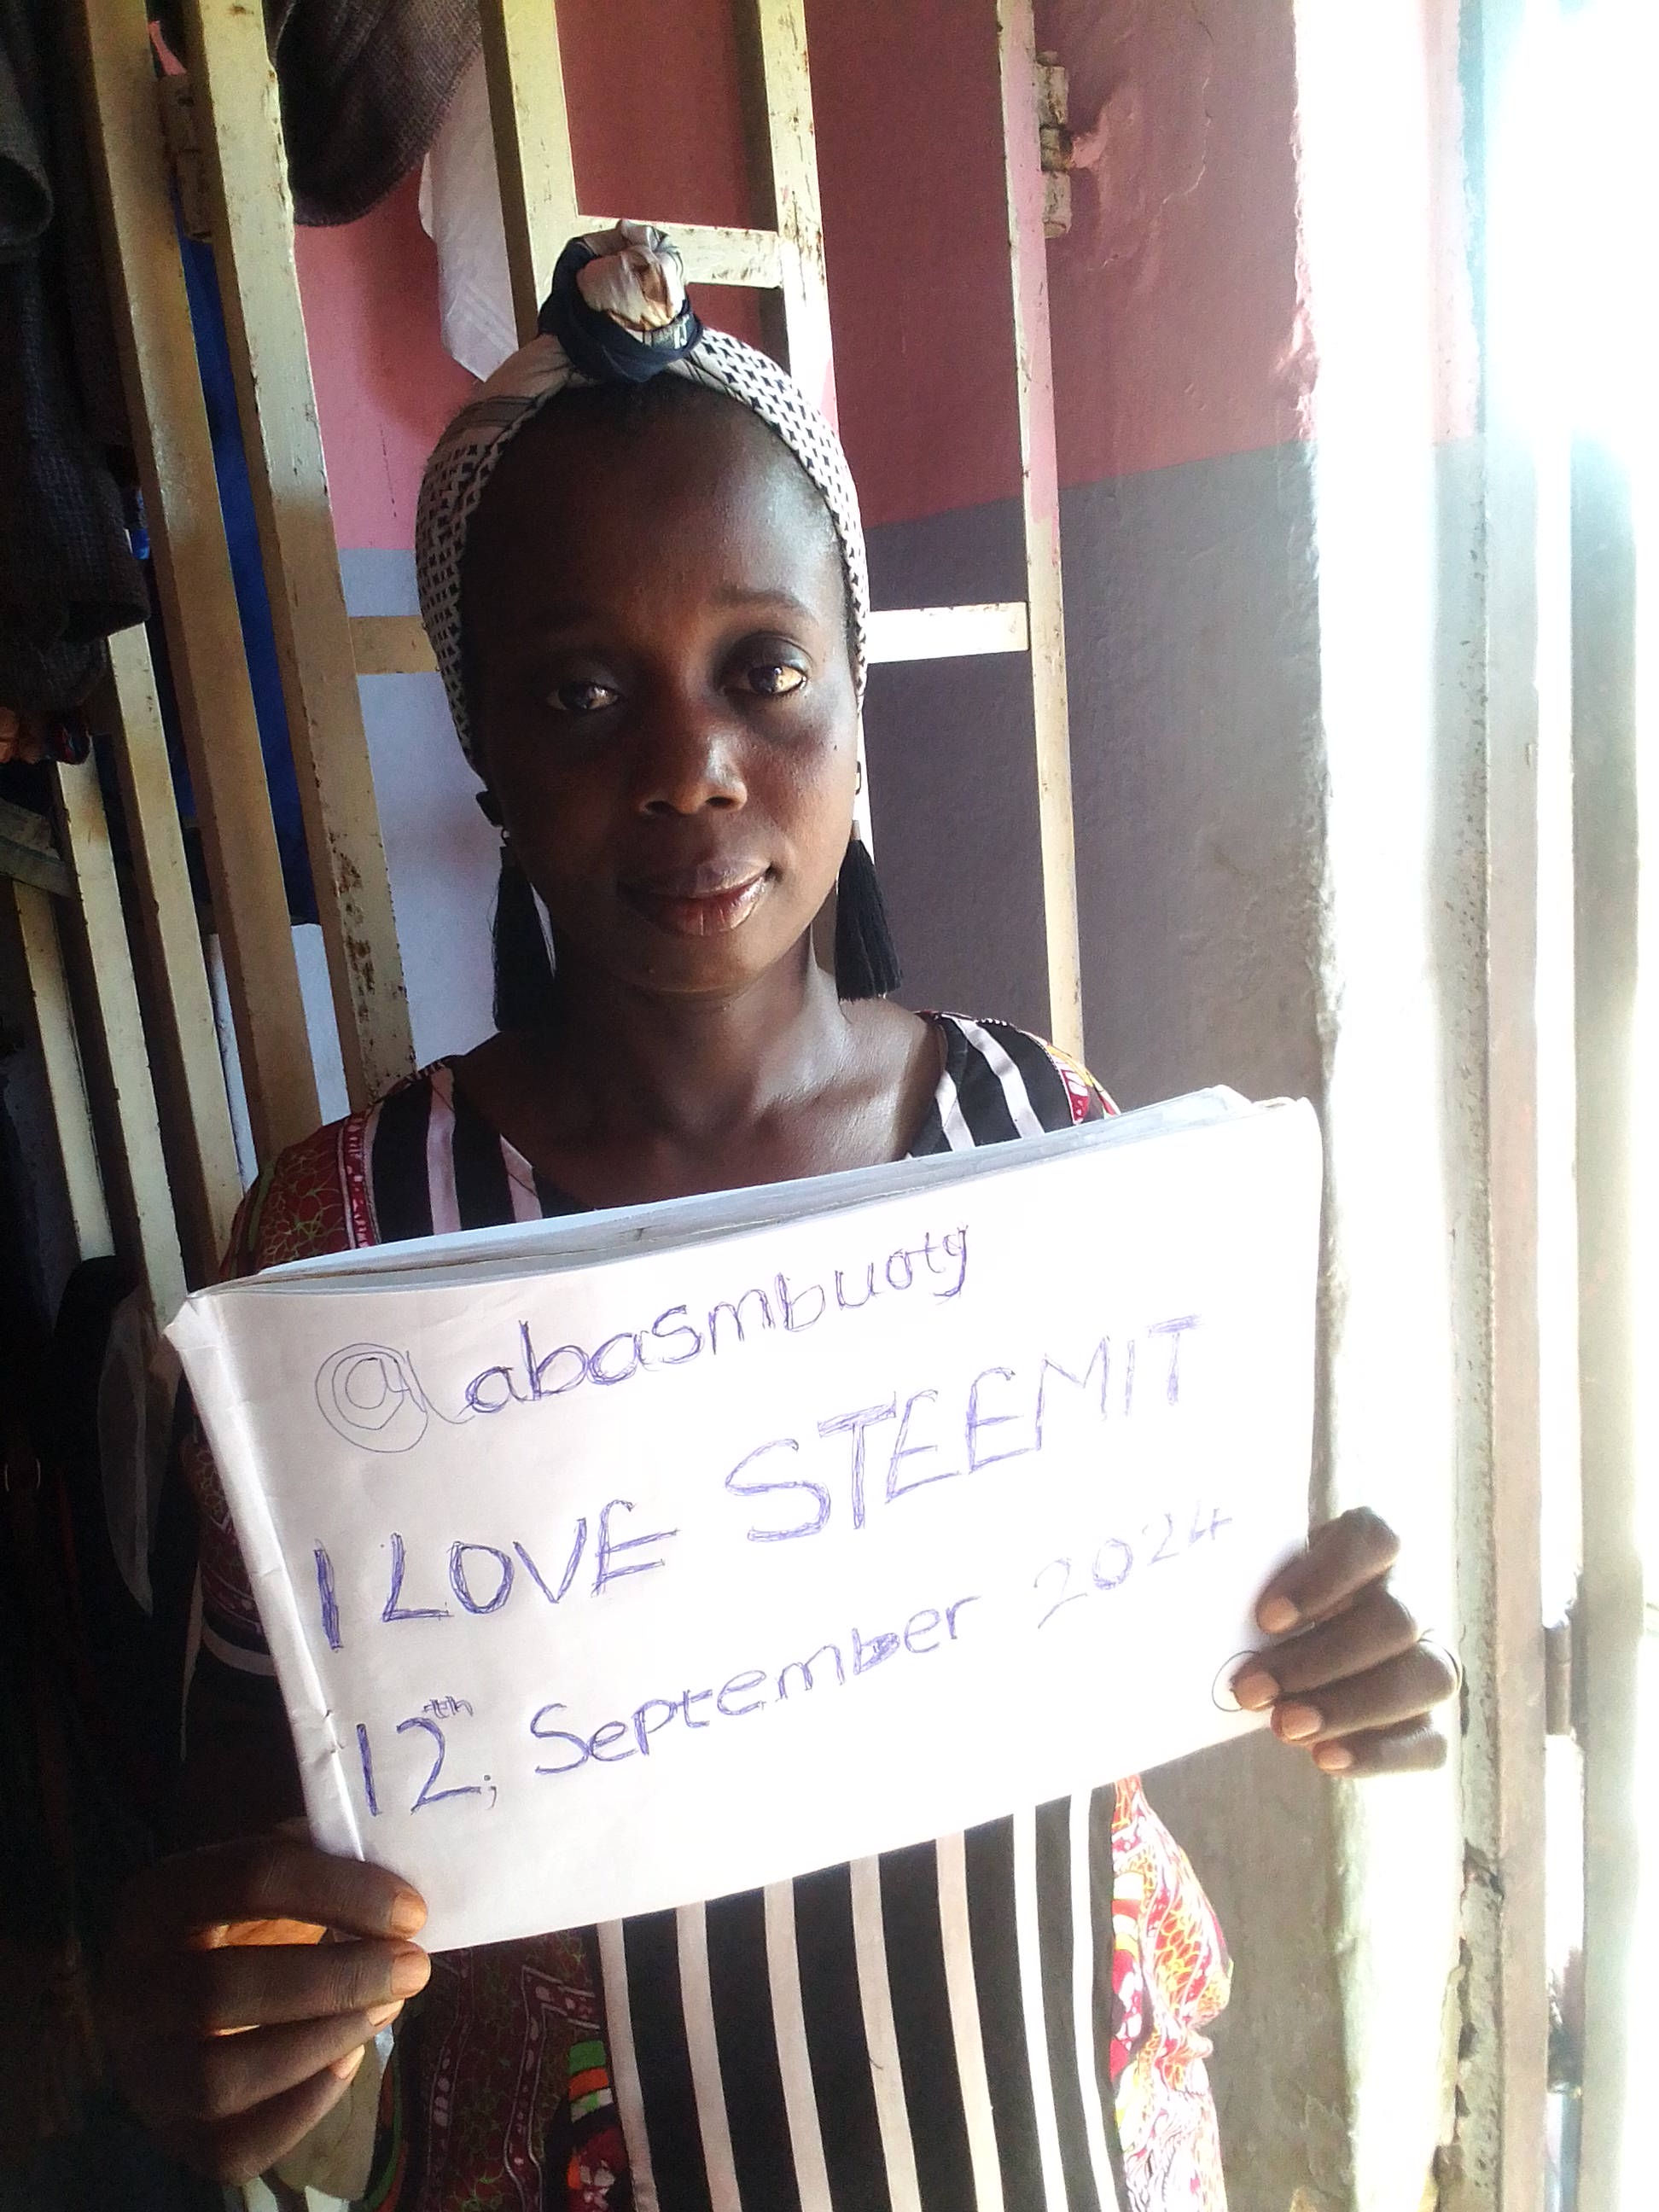 @abasmbuoty
I LOVE STEEMIT
12th; September 2024